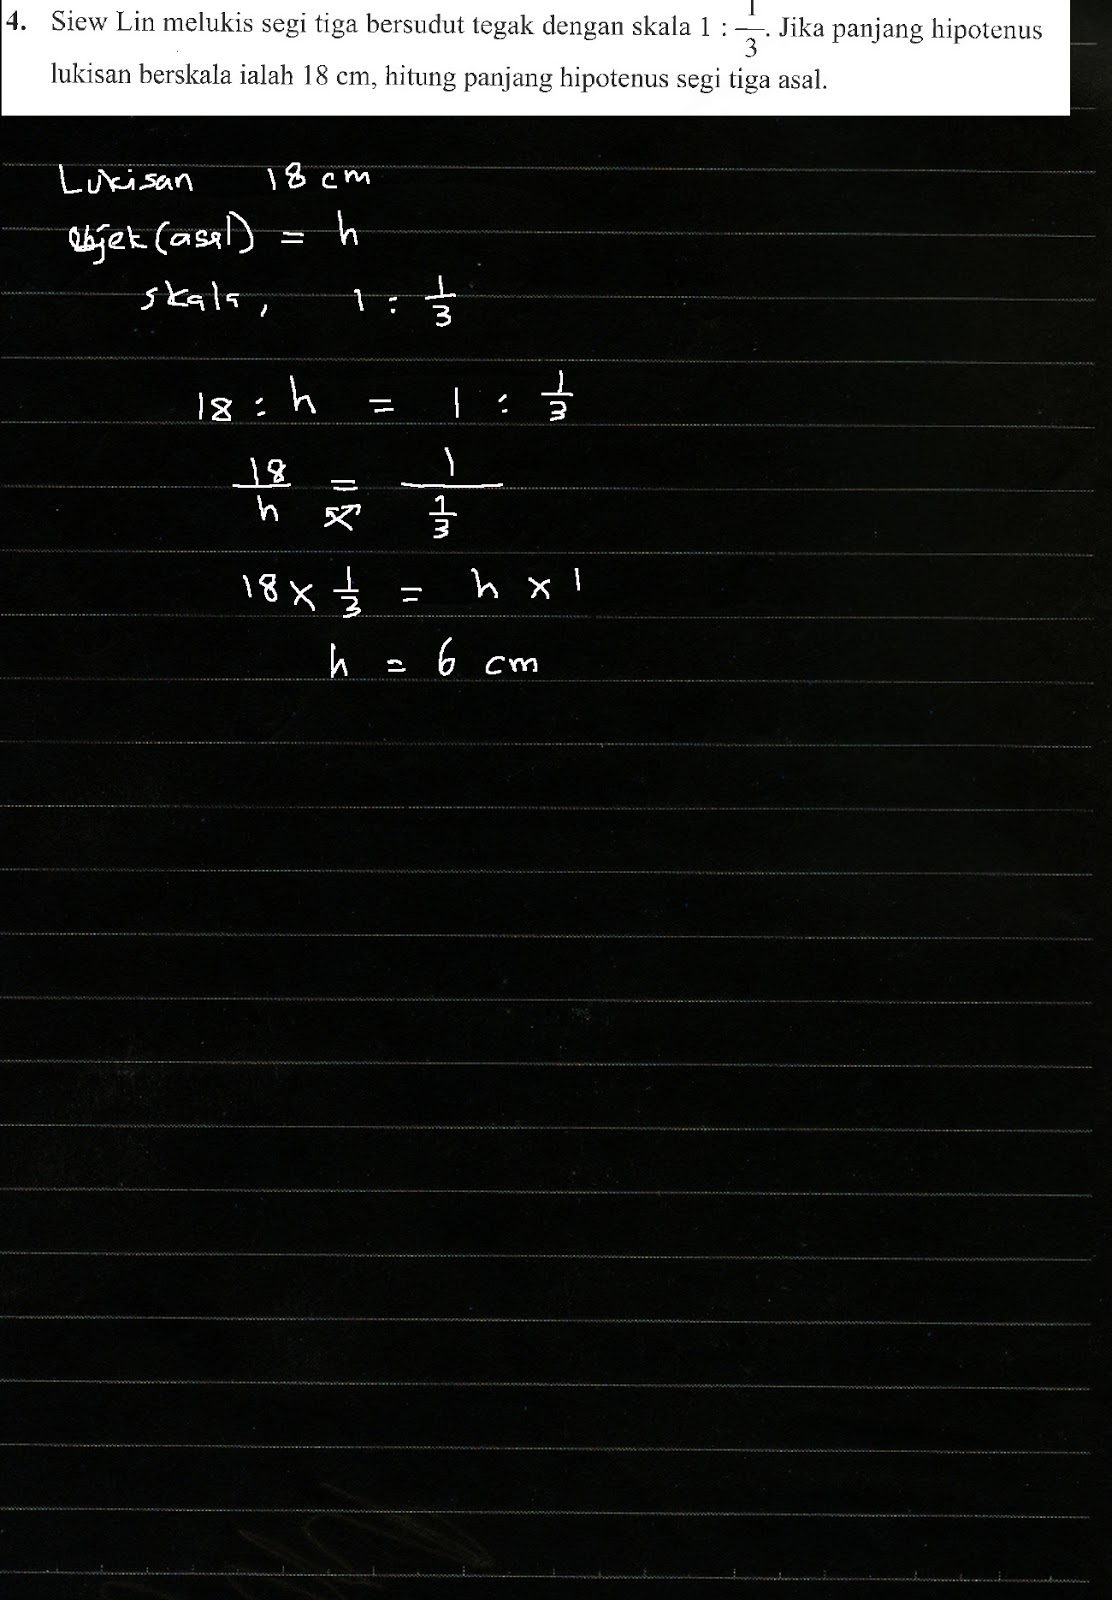 4. Siew Lin melukis segi tiga bersudut tegak dengan skala 1 : 1/3. Jika panjang hipotenus
lukisan berskala ialah 18 cm, hitung panjang hipotenus segi tiga asal.
Lukisan 18 cm
objek (asal) = h
skala, 1 : 1/3
18 : h = 1 : 1/3
18/h = 1/(1/3)
18 × 1/3 = h × 1
h = 6 cm